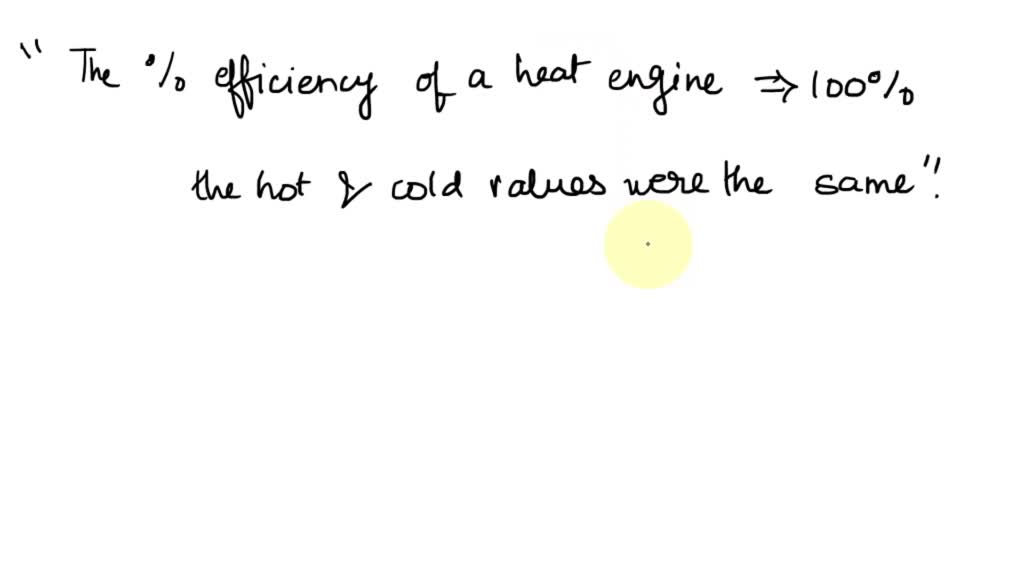 "The % efficiency of a heat engine ⇒ 100%
the hot & cold values were the same".